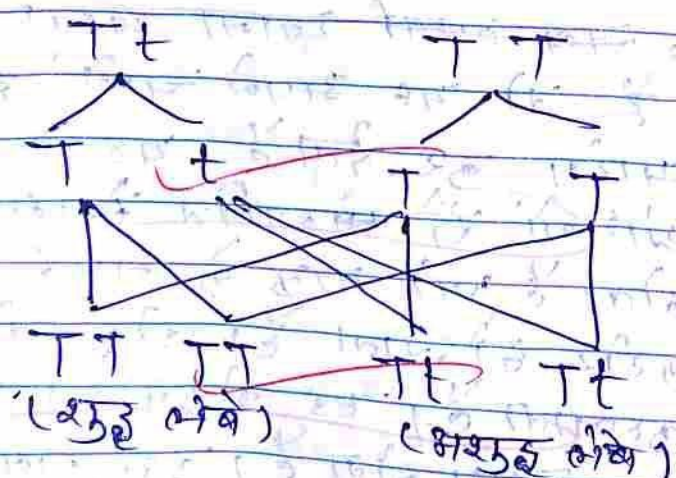 T t T T
T t T T
T T T T T t T t
(शुद्ध लंबे) (अशुद्ध लंबे)